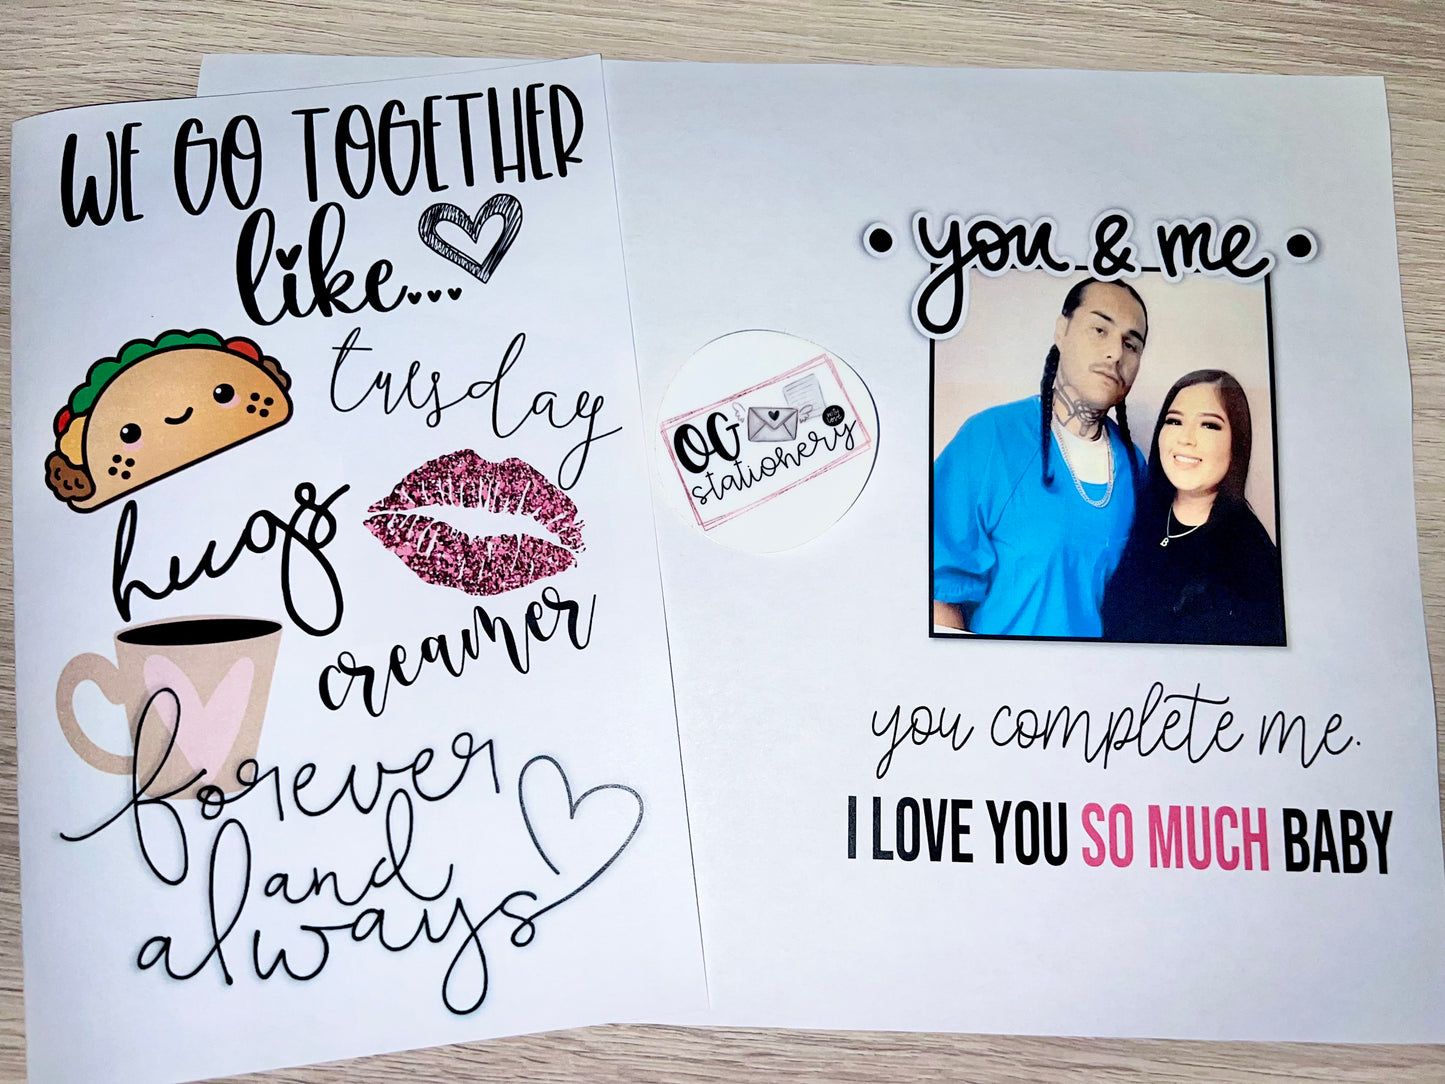 WE GO TOGETHER
like...
tuesday
hugs
creamer
forever
and
always
OG
stationery
• you & me •
you complete me.
I LOVE YOU SO MUCH BABY
B